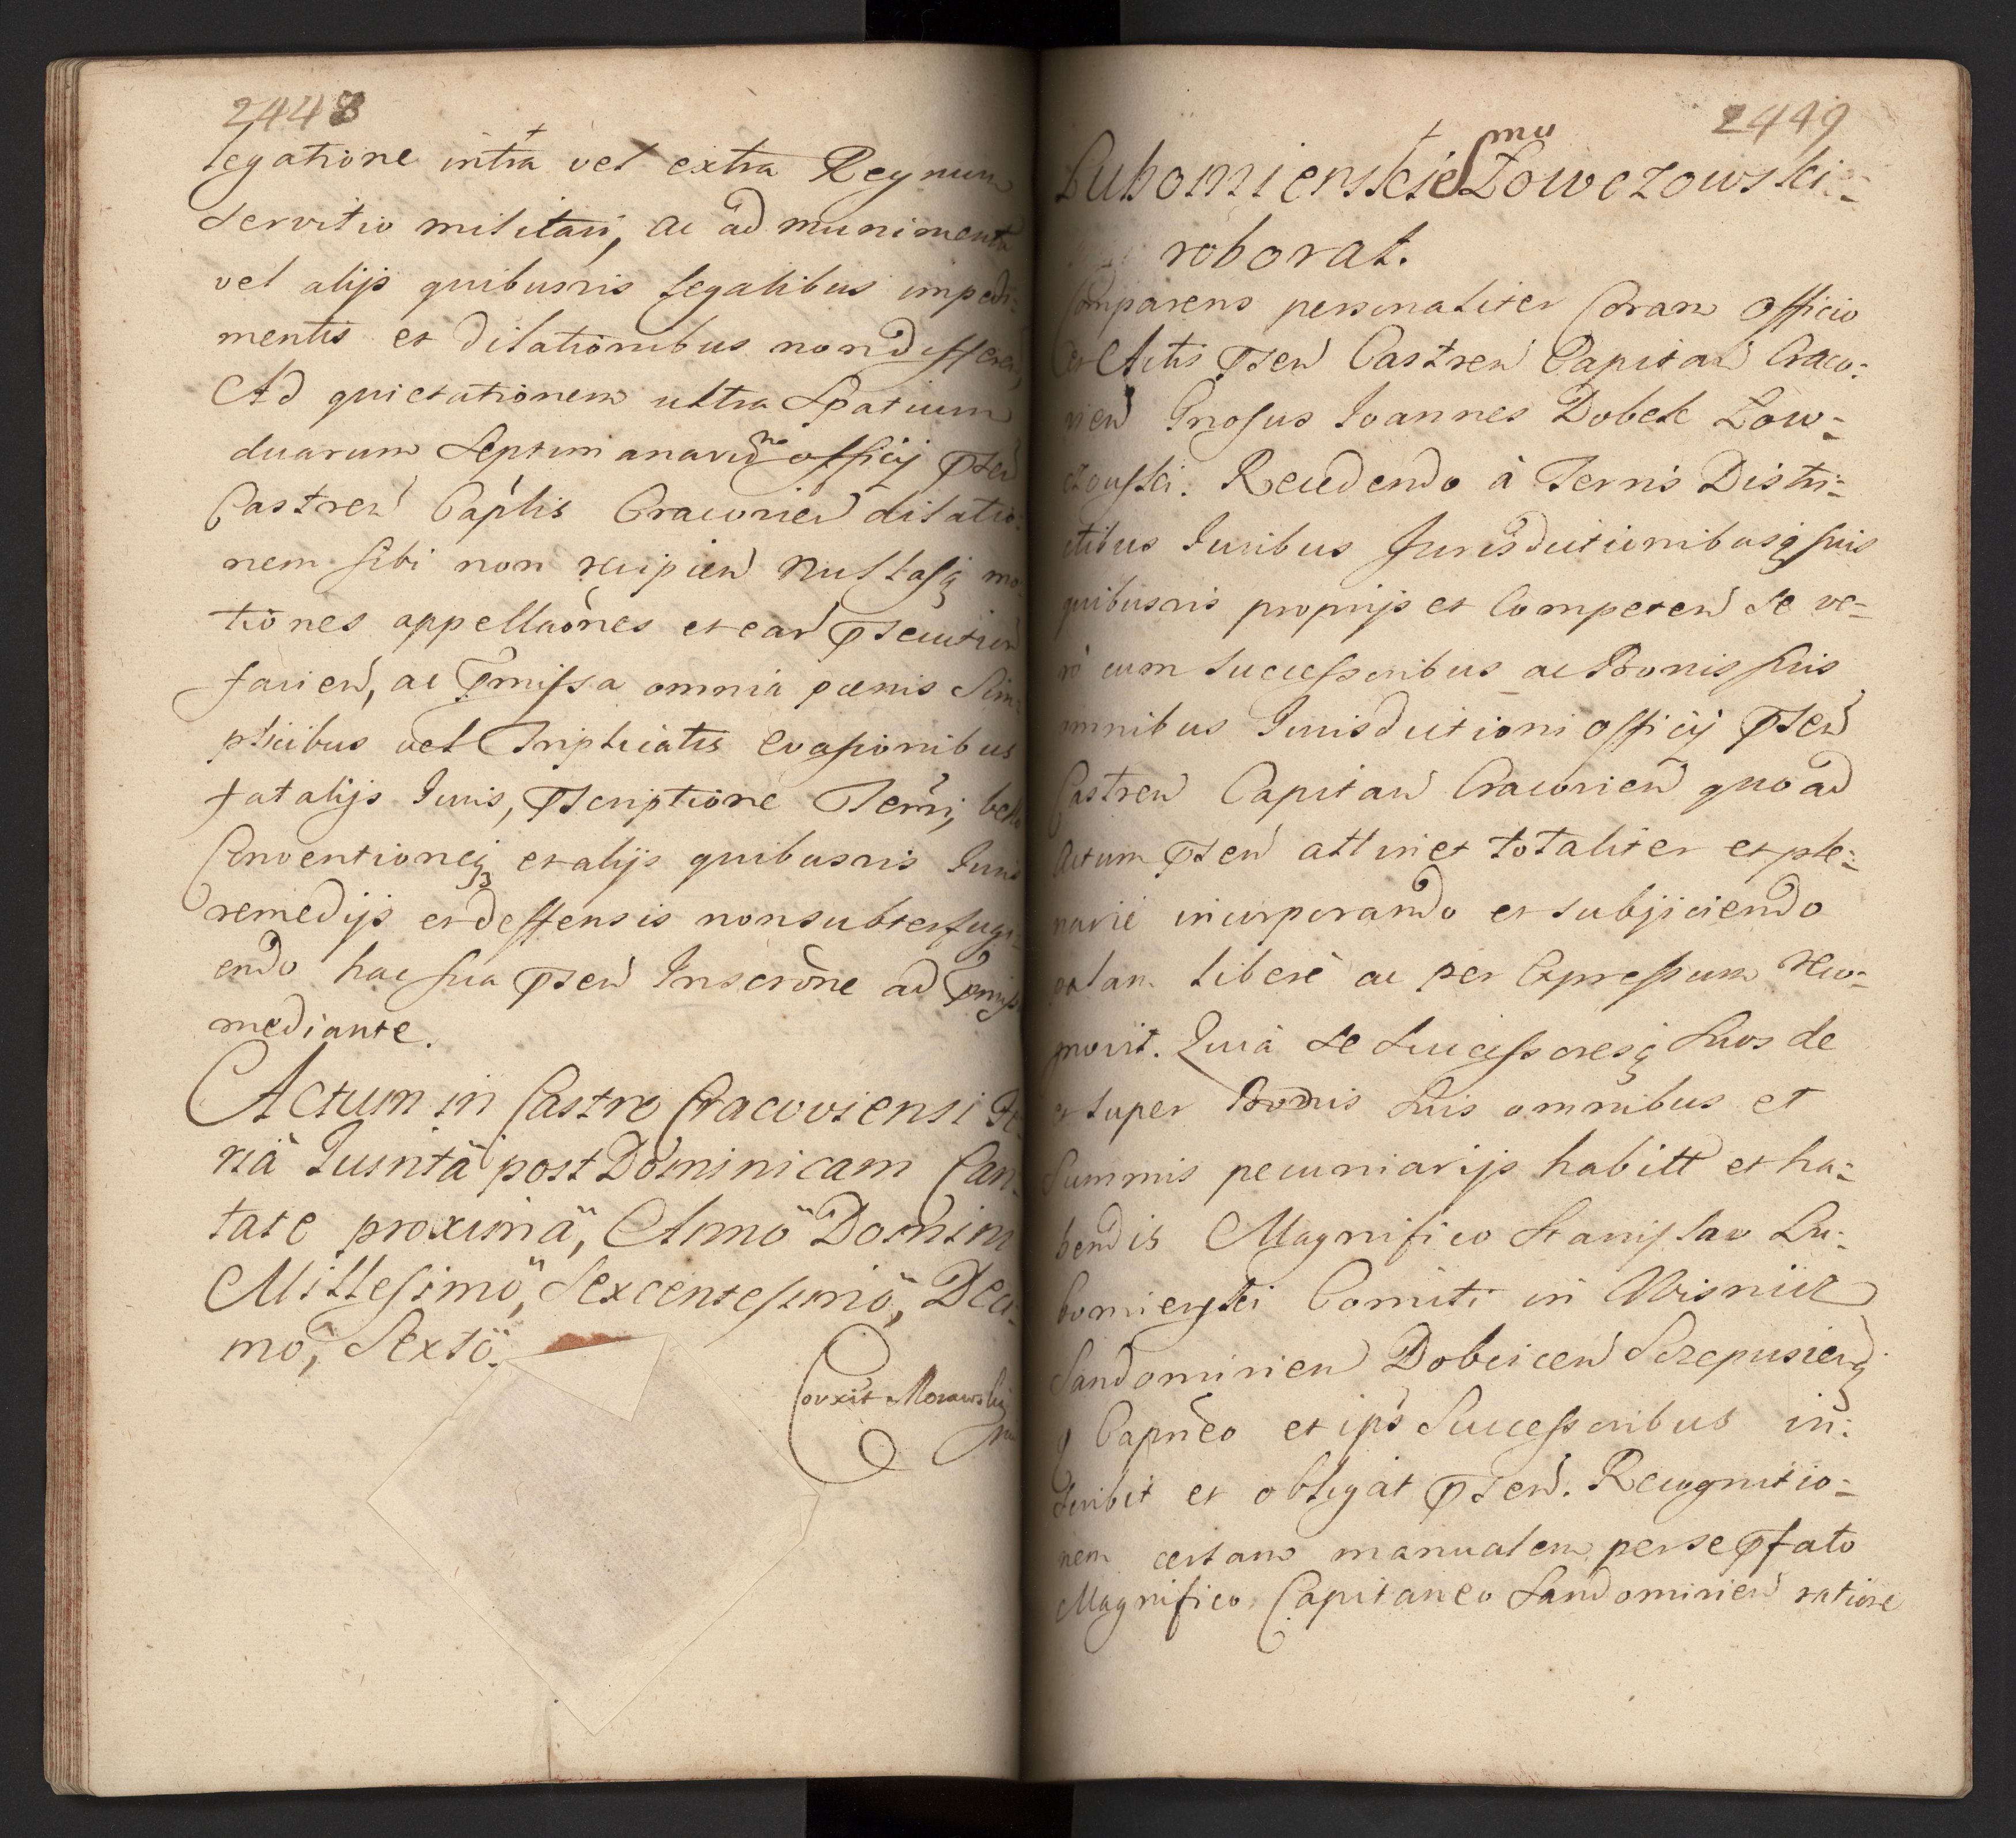 2448
legatione intra vel extra Regnum
servitio militari, ac ad munimenta
vel alijs quibusvis legalibus impedi-
mentis et dilationibus non differen
Ad quietationem ultra Spatium
duarum Septimanaru officij pnteñ
Castreñ Caplis Cracovieñ dilatio-
nem sibi non recipieñ nullasq mo-
tiones appellaōnes et earū psecution
facieñ, ac pmissa omnia pœnis Sim-
plicibus vel Triplicatis evasionibus
fatalijs Juris, pscriptione Terrj, bello
Conventioneq et alijs quibusvis Juris
remedijs et deffensis non subterfugi-
endo hac sua pnteñ Inscrōne ad pmiss
mediante.
Actum in Castro Cracoviensi Fe-
riâ Quintâ post Dominicam Can-
tate proximâ, Annô Domini
Millesimô, Sexcentesimô, Deci-
mô, Sextô.
Corxit Morawski
mp
2449
Lubomierskie Smu Łowczowski-
roborat.
Comparens personaliter Coram Officio
et Actis pnteñ Castreñ Capitañ Craco-
vieñ Gnosus Joannes Dobek Łow-
czowski. Recedendo à Terris Distri-
ctibus Juribus Jurisdictionibusq suis
quibusvis proprijs et Competeñ se ve-
rò cum successoribus ac Bonis suis
omnibus Jurisdictioni officij pnteñ
Castreñ Capitañ Cracovieñ quo ad
Actum pnteñ attinet totaliter et ple-
nariè incorporando et subijciendo
palam liberè ac per Expressum reco-
gnovit. Quia se Successoresq Suos de
et super Bonis Suis omnibus et
Summis pecuniarijs habitt et ha-
bendis Magnifico Stanislao Lu-
bomierski Comiti in Wisnicz
Sandomirieñ Dobcziceñ Sczepusieñq
q Capneo et ips Successoribus in-
scribit et obligat pnteñ. Recognitio-
nem certam manualem per se pfato
Magnifico Capitaneo Sandomirieñ ratione